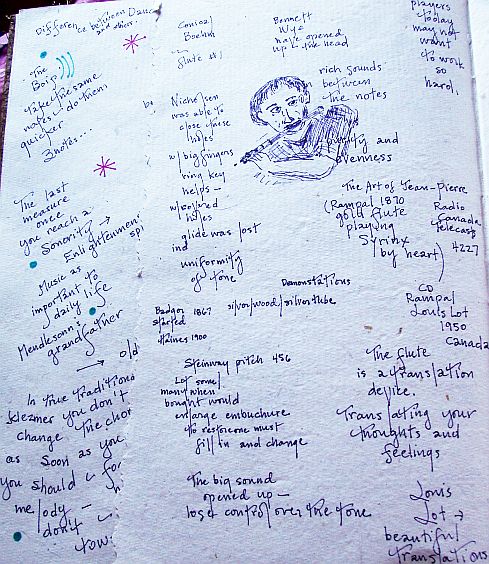 Difference between Dance
and others.
The
Boip
take the same
notes & do them
quicker
3 notes...
The last
measure
once
you reach 2
Sonority →
Enlightenment
Music as
important to
daily life
Mendelssohn's
grandfather
→ old
In true traditional
klezmer you don't
change the chor
as soon as you
you should
melody —
don't
tow
Boehm
flute
Nicholsen
was able to
close these
holes
w/ big fingers
ring key
helps —
w/ covered
holes
glide was lost
and
uniformity
of tone
Badger 1867
started
Haines 1900
Bennett
Wye
have opened
up — the head
rich sounds
in between
the notes
purity and
evenness
Demonstations
silver/wood/silvertube
Steinway pitch 456
Lot
many when
bought would
enlarge embuchure
to
fill in and change
The big sound
opened up —
lose control over the tone
players
today
may not
want
to work
so
hard.
The Art of Jean-Pierre
(Rampal 1870
gold flute
playing
Syrinx
by heart)
Radio
Canada
Telecast
4227
CD
Rampal
Louis Lot
1950
Canada
The flute
is a translation
device.
Translating your
thoughts and
feelings
Louis
Lot →
beautiful
translations